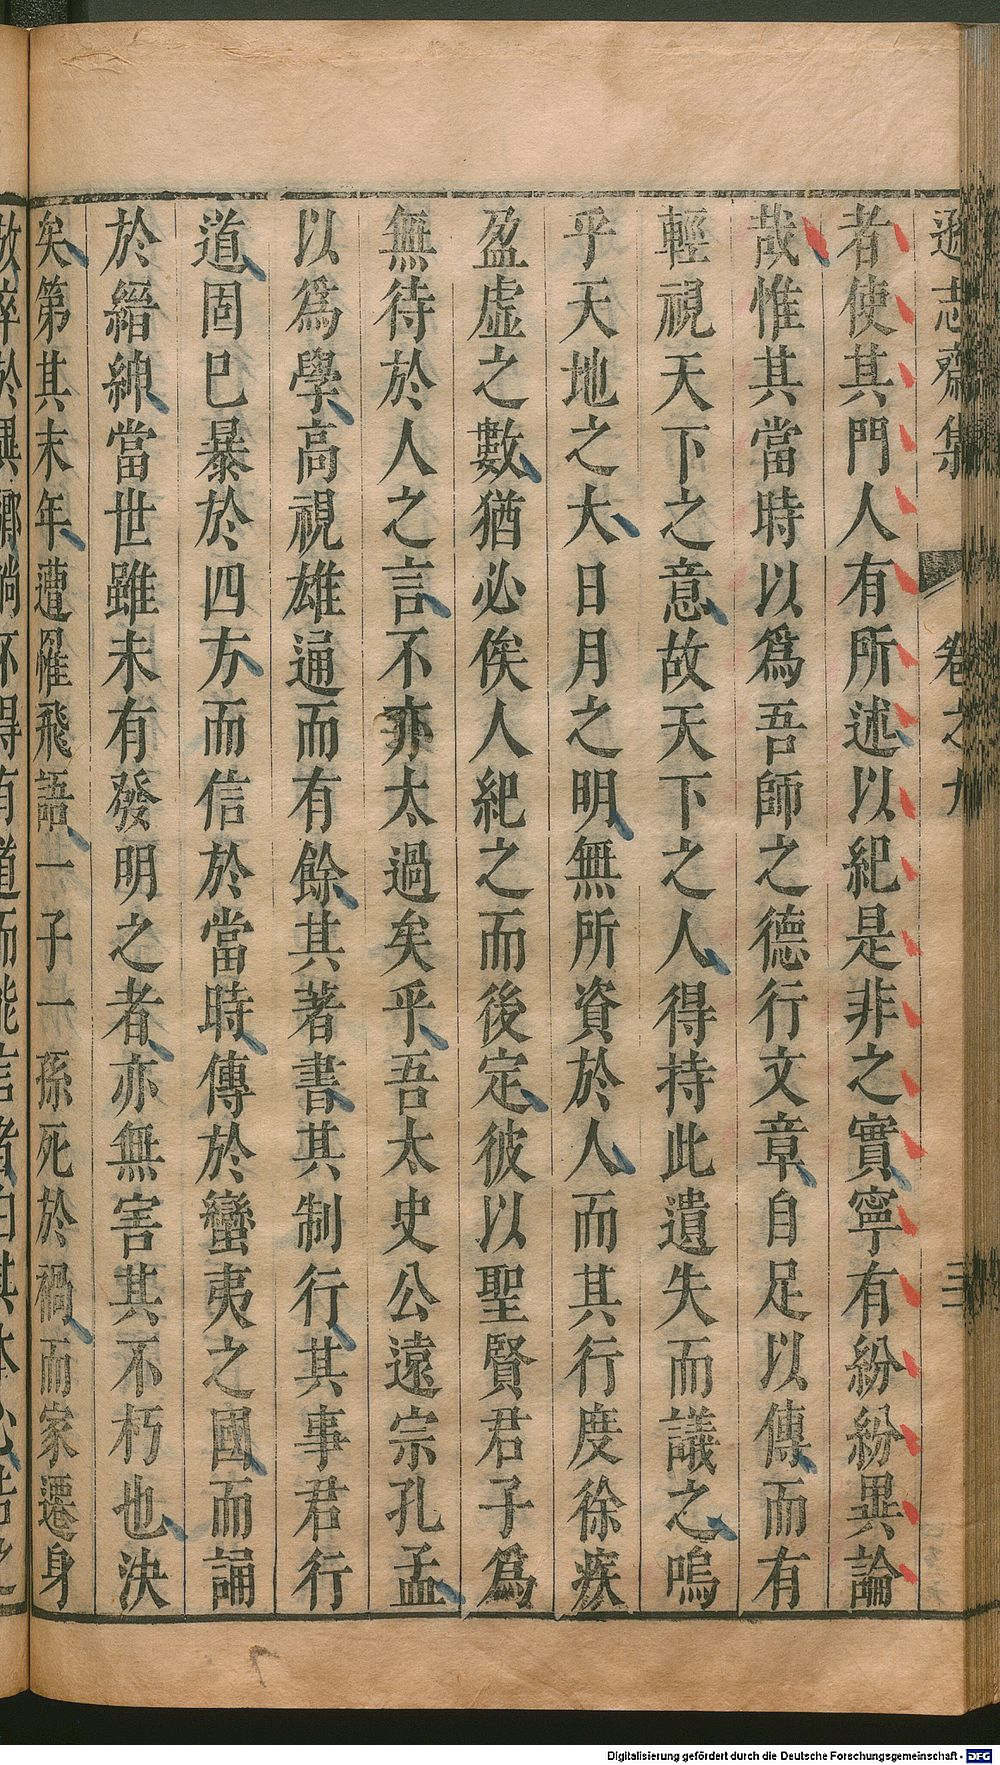 遜志齋集 卷之九 三
者使其門人有所述以紀是非之實寧有紛紛異論
哉惟其當時以爲吾師之德行文章自足以傳而有
輕視天下之意故天下之人得持此遺失而議之嗚
乎天地之大日月之明無所資於人而其行度徐疾
盈虛之數猶必俟人紀之而後定彼以聖賢君子爲
無待於人之言不亦太過矣乎吾太史公遠宗孔孟
以爲學高視雄通而有餘其著書其制行其事君行
道固已暴於四方而信於當時傳於蠻夷之國而誦
於縉紳當世雖未有發明之者亦無害其不朽也決
矣第其末年遭罹飛語一子一孫死於禍而家遷身
故辭於興鄉尚不得有道而能言者白其本心
Digitalisierung gefördert durch die Deutsche Forschungsgemeinschaft - DFG